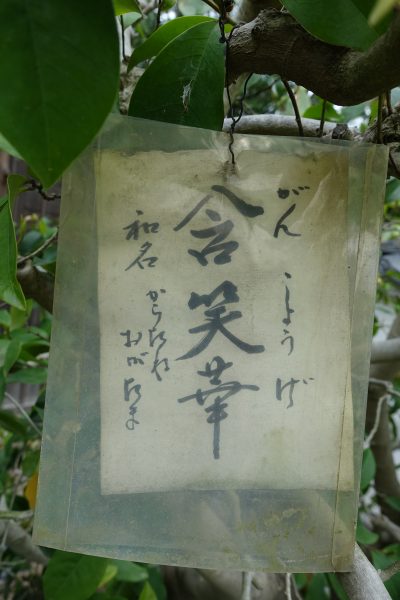 がん しょうげ
含笑華
和名 からたね
おがたま